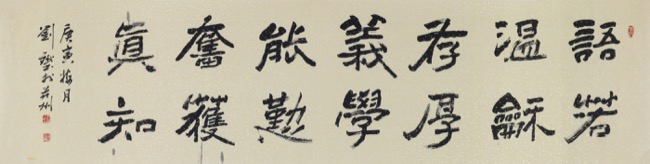 語若
溫龢
存厚
義學
能勤
奮獲
真知
庚寅梅月
劉於并州